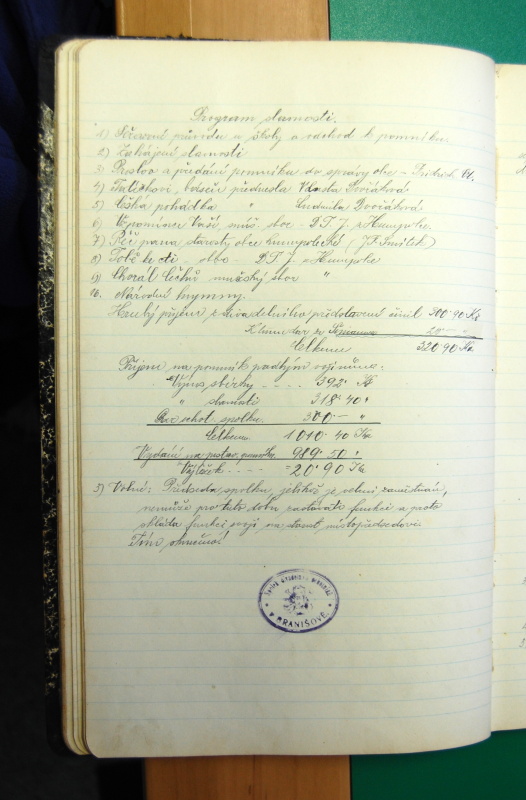 Program slavnosti.
1) Seřazení průvodu u školy a odchod k pomníku.
2) Zahájení slavnosti
3) Proslov a předání pomníku do správy obce – Fridrich
4) Tatíčkovi, báseň přednesla Vlasta Dvořáková
5) Těžká pohádka " Ludmila Dvořáková
6) Vzpomínce Vaší, muž. sbor – D.T.J. z Humpolce
7) Řeč pana starosty obce humpolecké (J. F. Smiček)
8) Tobě sbor – D.T.J. z Humpolce
9) Chorál Čechů mužský sbor "
10. Národní hymny.
Hrubý příjem z divadelního představení činil 300·90 Kč
20
Celkem 320·90 Kč
Příjem na pomník padlým vojínům:
Výnos sbírky - - - - 392· Kč
" slavnosti 318·40 "
ochot. spolku. 300·– "
Celkem 1010·40 Kč
Vydání na postav. pomníku 989·50 "
Výtěžek : - - - = 20·90 Kč
3) Volné: Předseda spolku, jelikož je velmi zaměstnán,
nemůže pro tuto dobu zastávati funkci a proto
skládá funkci svoji na místopředsedovi
Tím skončeno!
V BRANIŠOVĚ